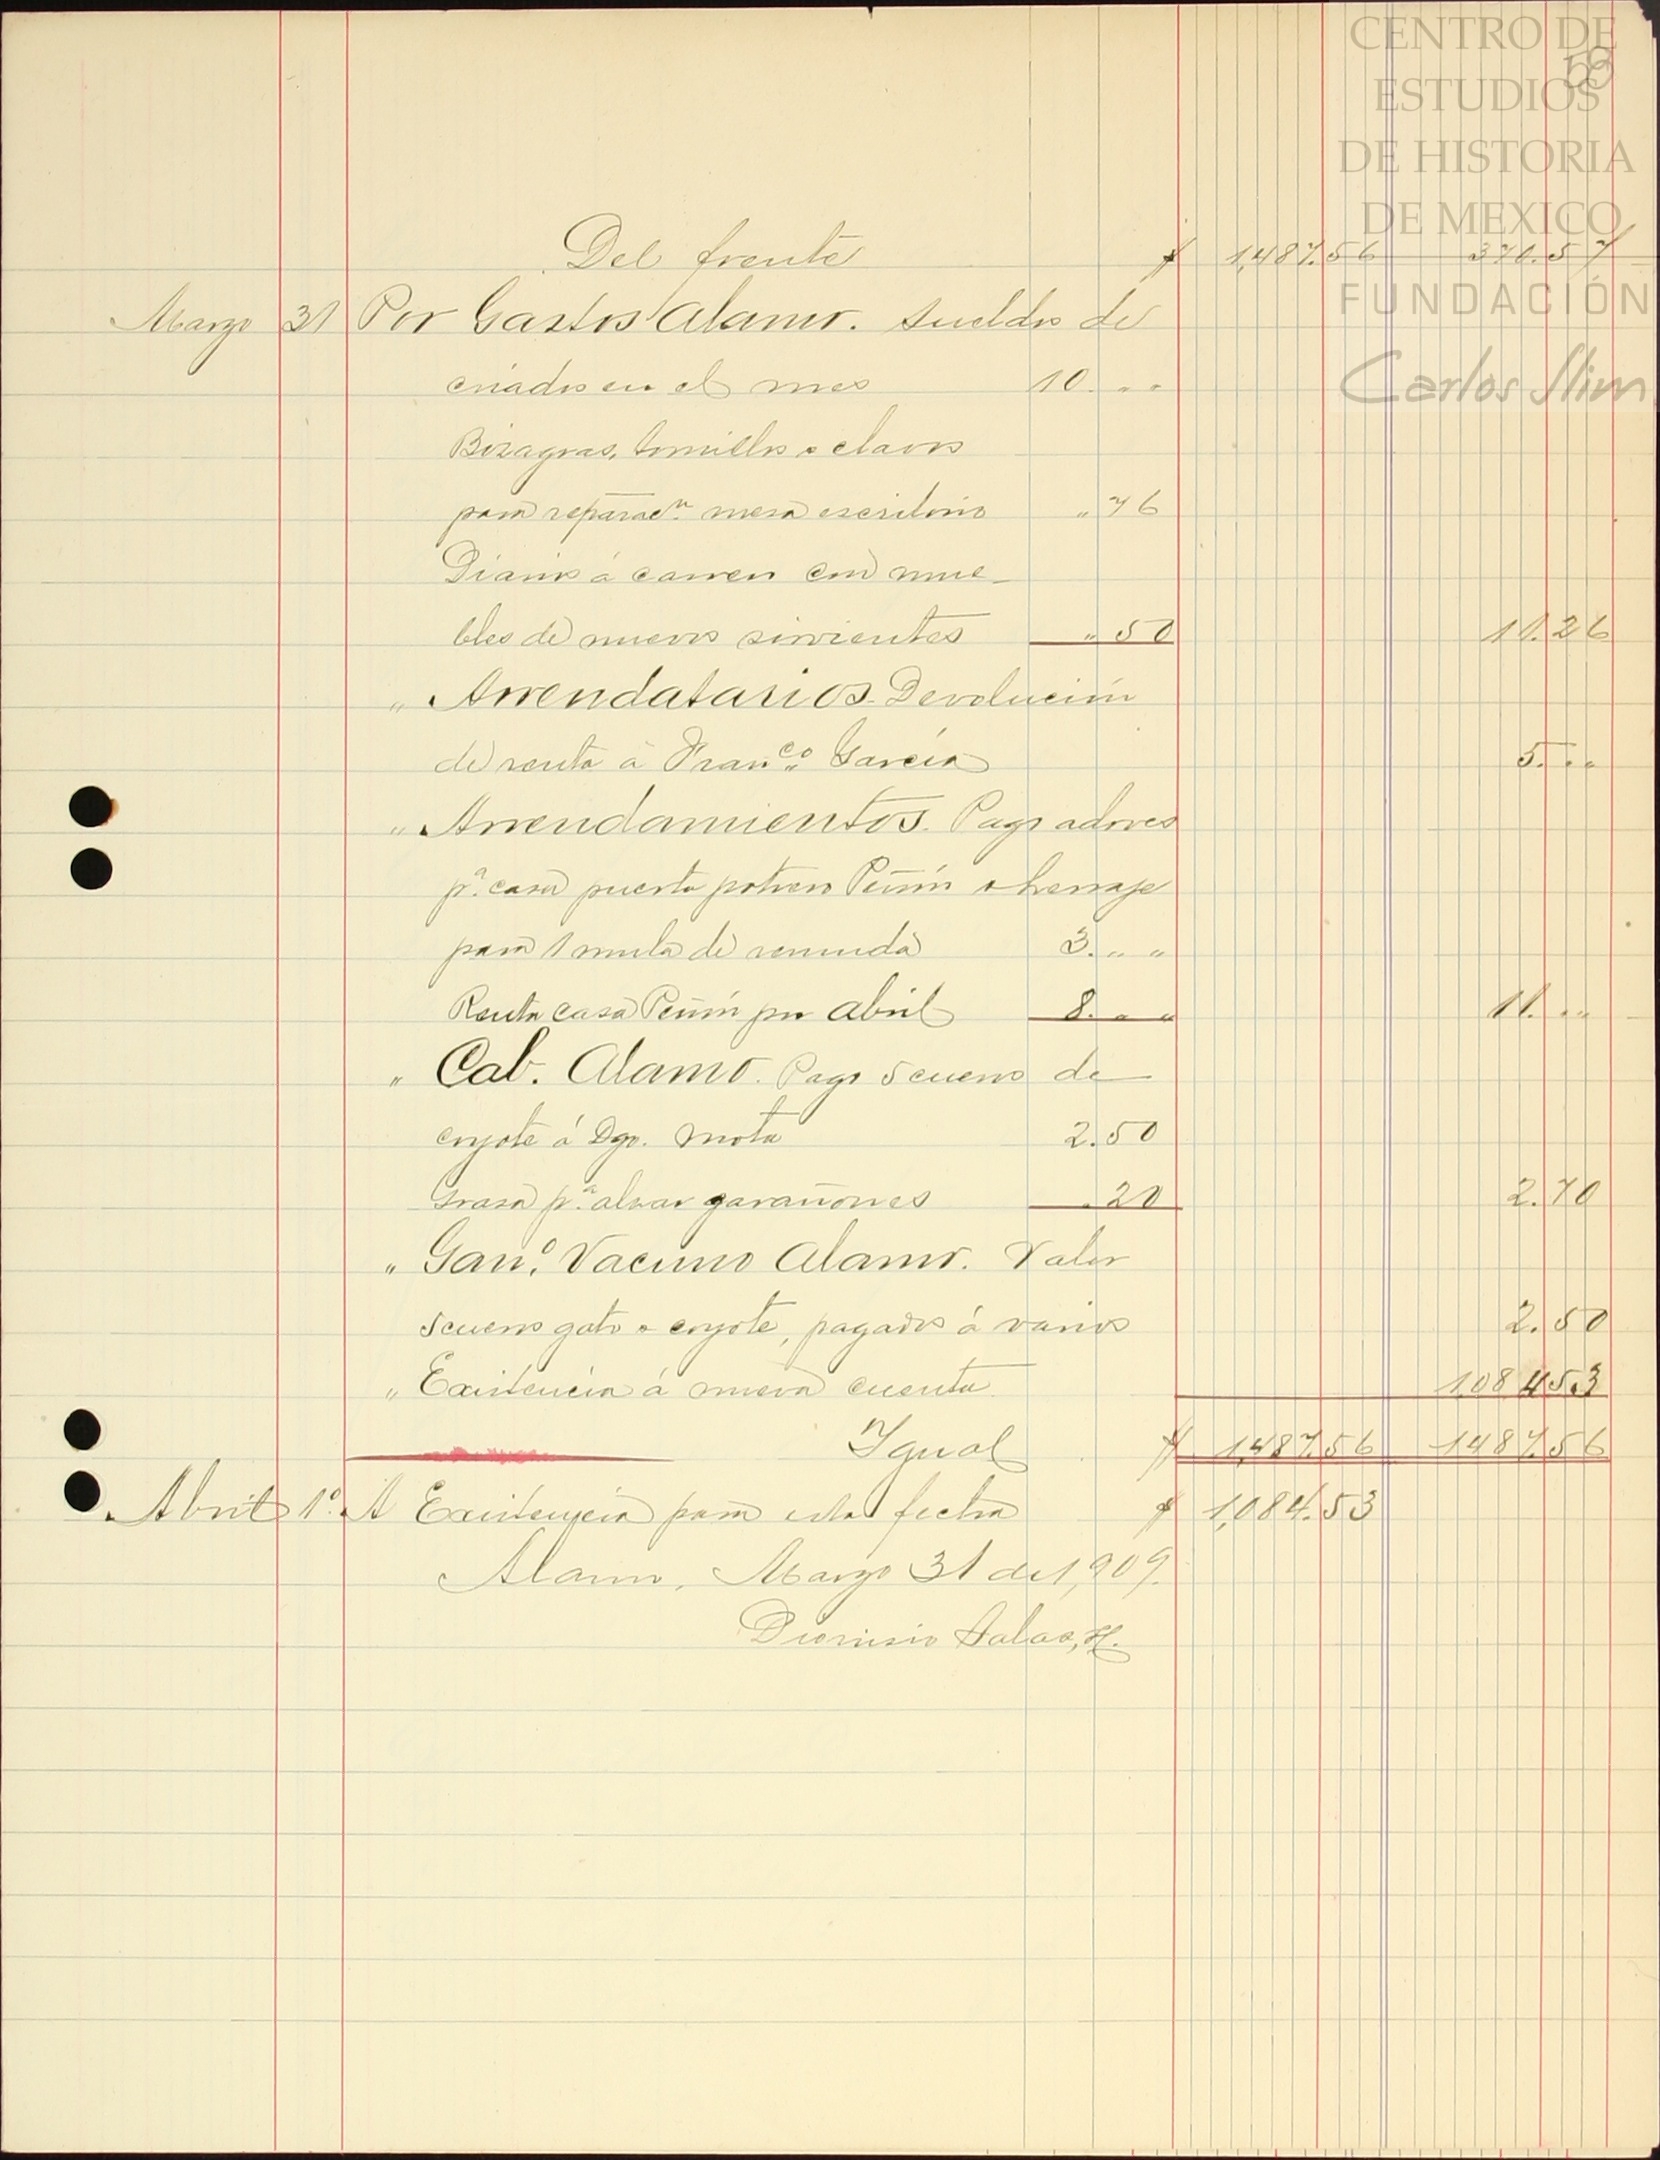 CENTRO DE
ESTUDIOS
DE HISTORIA
DE MEXICO
FUNDACIÓN
Carlos Slim
53
Del frente $ 1,487.56 370.57
Marzo 31 Por Gastos Alamo. Sueldos de
criados en el mes 10. " "
Bizagras, tornillos & clavos
para reparacn. mesa escritorio " 76
Diarios á carren con mue-
bles de nuevos sirvientes " 50 11.26
" Arrendatarios. Devolución
de renta á Franco. García 5. " "
" Arrendamientos. Pago adoves
pa. casa puerta potrero Peñón & herraje
para 1 mula de remuda 3. " "
Renta casa Peñón por Abril 8. " " 11. " "
" Cab. Alamo. Pago 5 cueros de
coyote á Dgo. Mota 2.50
Grasa pa. garañones . 20 2.70
" Gano. Vacuno Alamo. Valor
5 cueros gato & coyote, pagados á varios 2.50
" Existencia á nueva cuenta 1084.53
Igual $ 1,487.56 1487.56
Abril 1o. A Existencia para esta fecha $ 1,084.53
Alamo, Marzo 31 de 1,909.
Dionisio Salas, H.